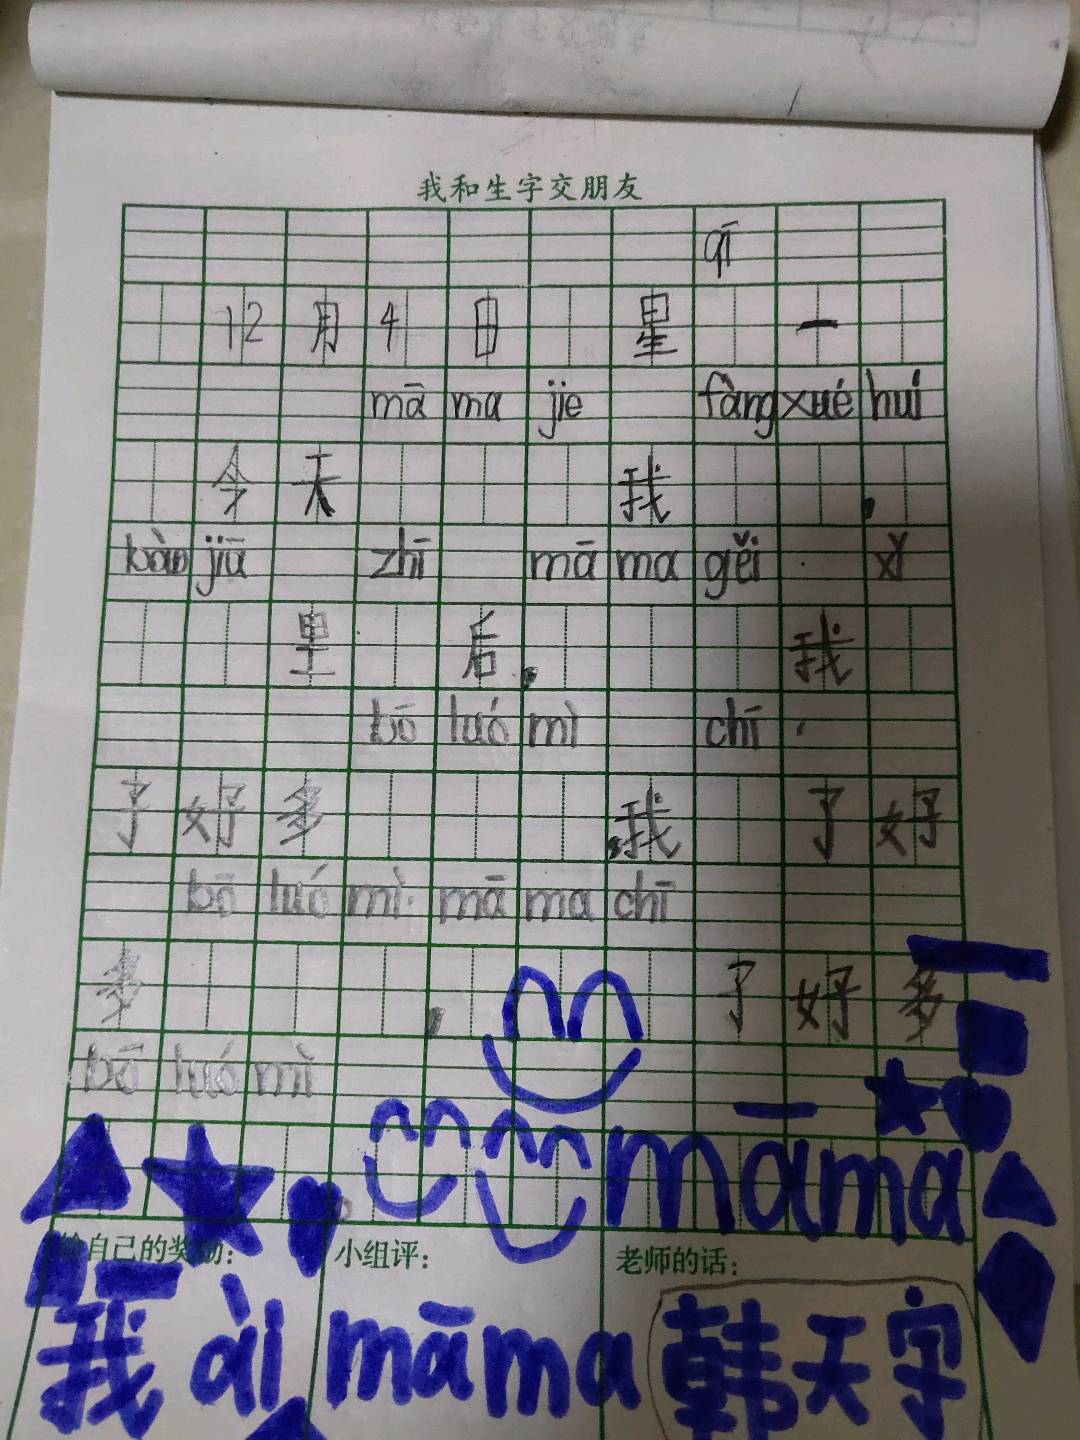 我和生字交朋友
qī
12月4日 星 一
mā ma jie fàng xué huí
今天 我 ,
dào jiā zhī mā ma gěi xǐ
里 后, 我
bō luó mì chī
了好多 .我 了好
bō luó mì mā ma chī
多 , 了好多
bō luó mì
māma
给自己的奖励: 小组评: 老师的话:
我ài māma 韩天字